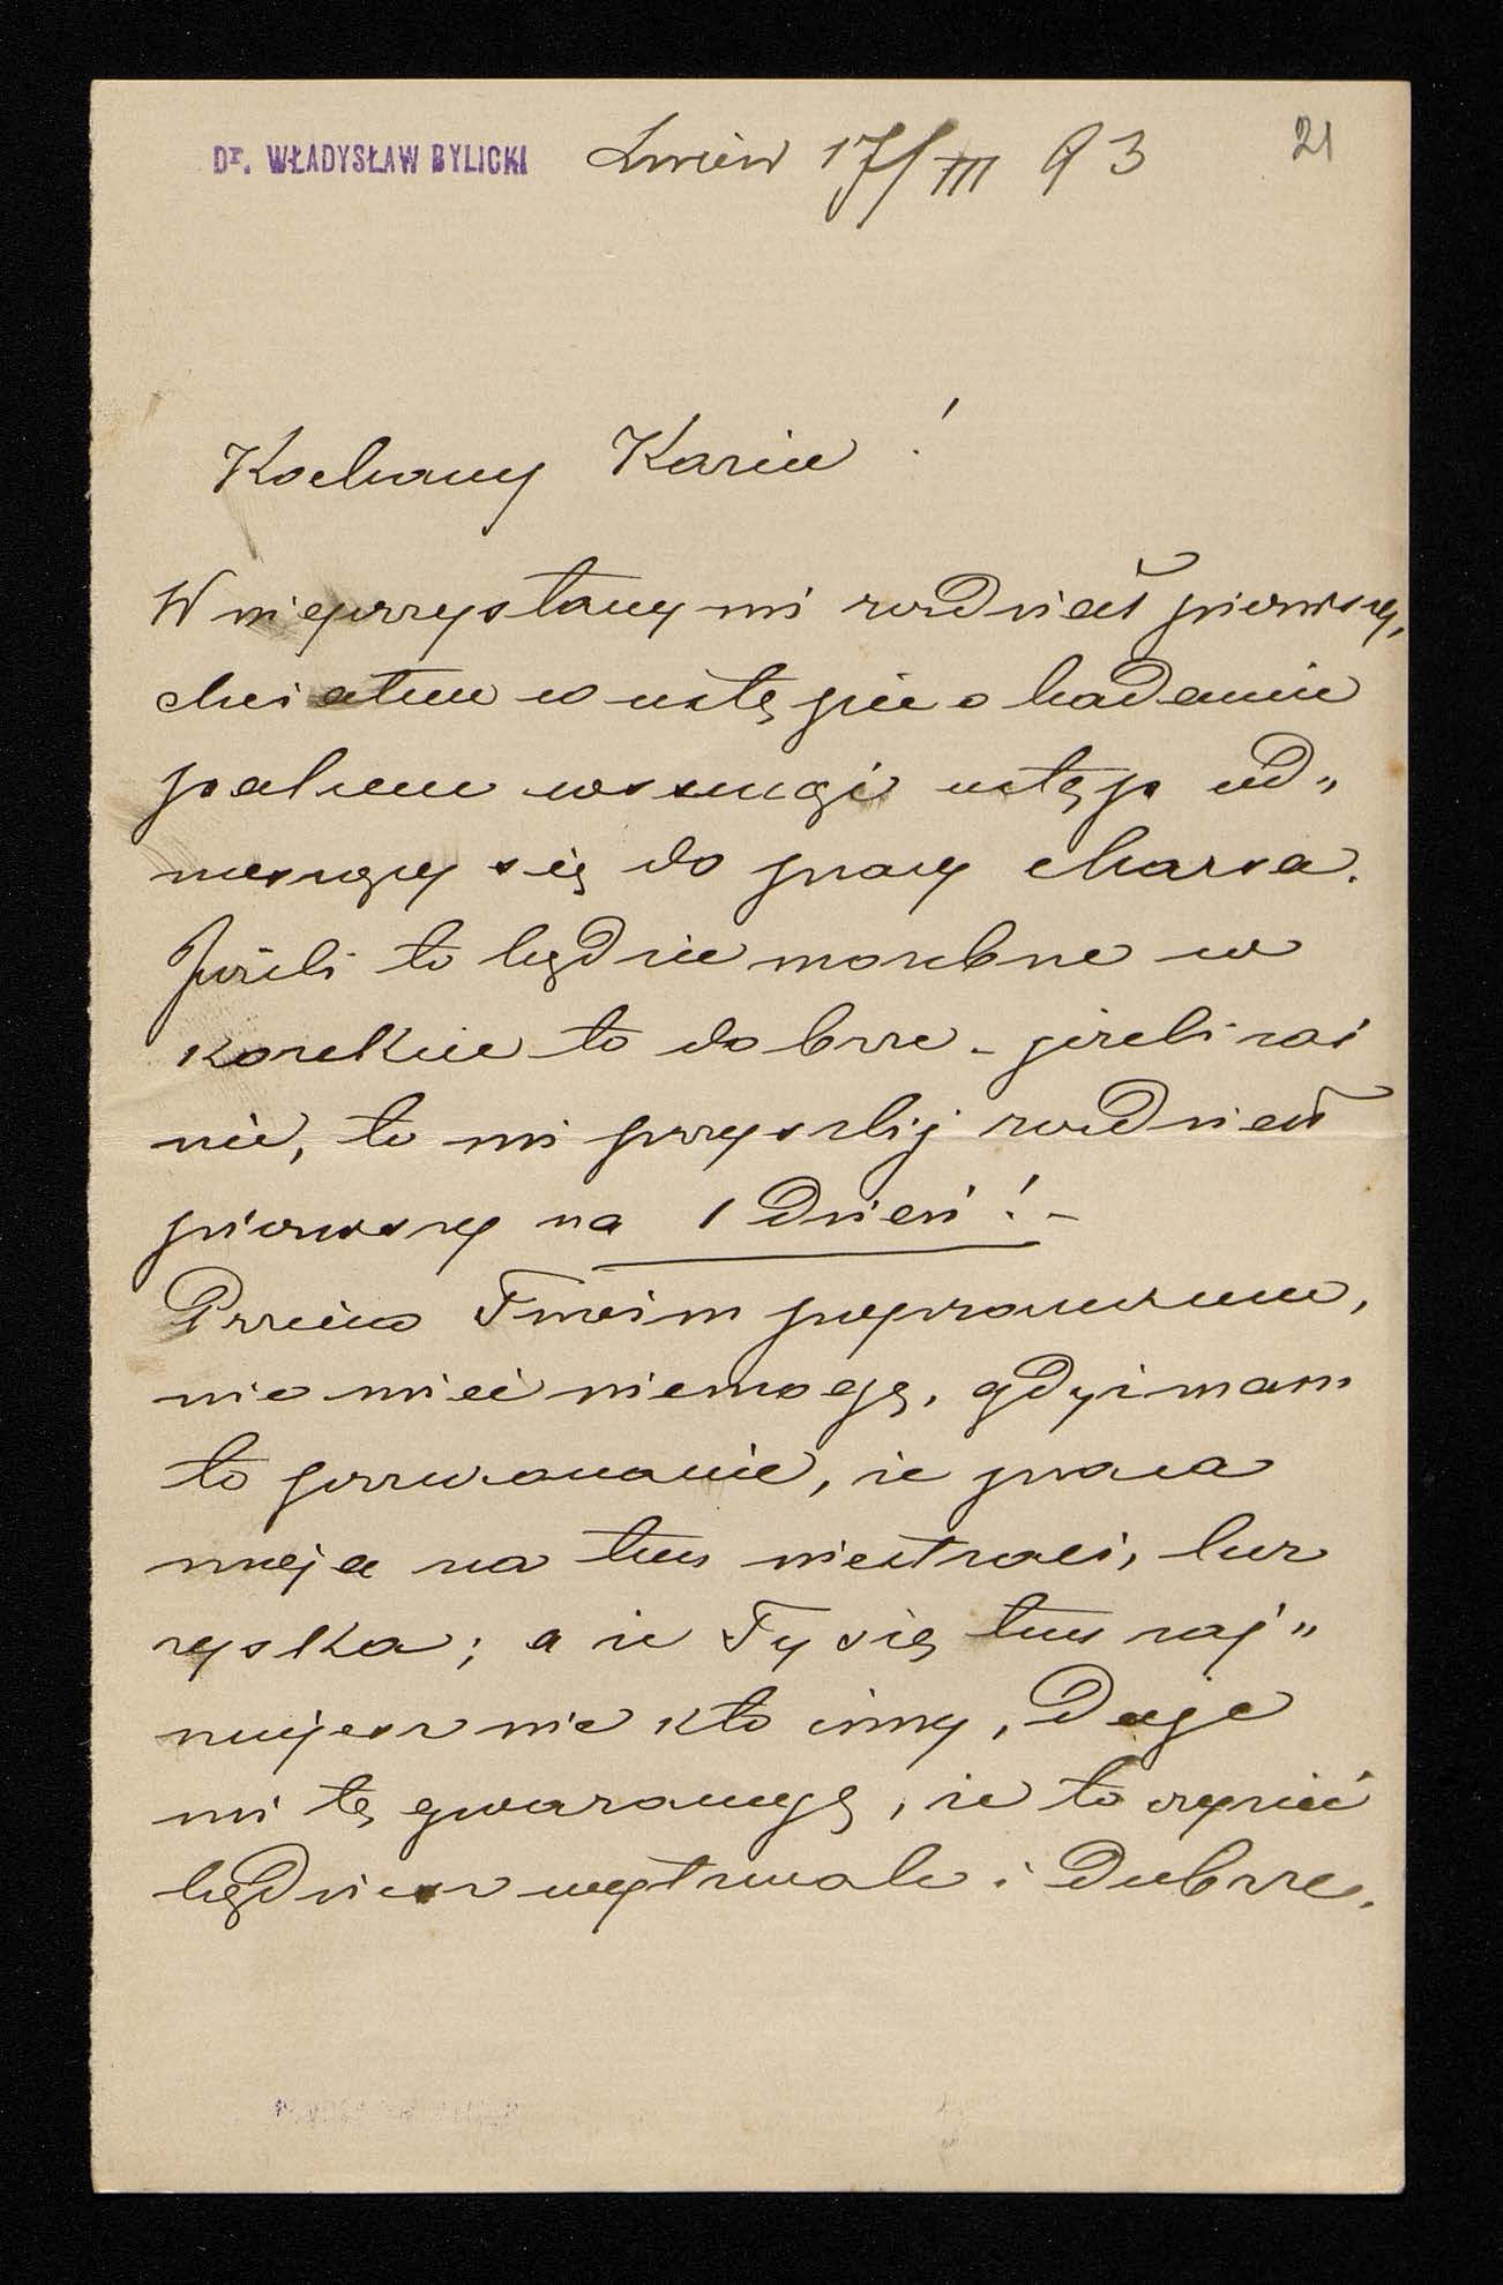 Dr. WŁADYSŁAW BYLICKI Lwów 17/III 93 21
Kochany Kaziu!
W nieprzysłany mi rozdział pierwszy,
chciałem w ustępie o badaniu
palcem wsunąć ustęp od„
noszący się do pracy Marsa.
Jeżeli to będzie możebne w
korekcie to dobrze – jeżeli zaś
nie, to mi przyszlij rozdział
pierwszy na 1 dzień! –
Przeciw Twoim poprawkom,
nic mieć niemogę, gdyż mam
to przekonanie, że praca
moja na tem niestraci, lecz
zyska; a że Ty się tem zaj„
mujesz nie kto inny, daje
mi tę gwarancyę, że to czynić
będziesz wytrwale i dobrze.